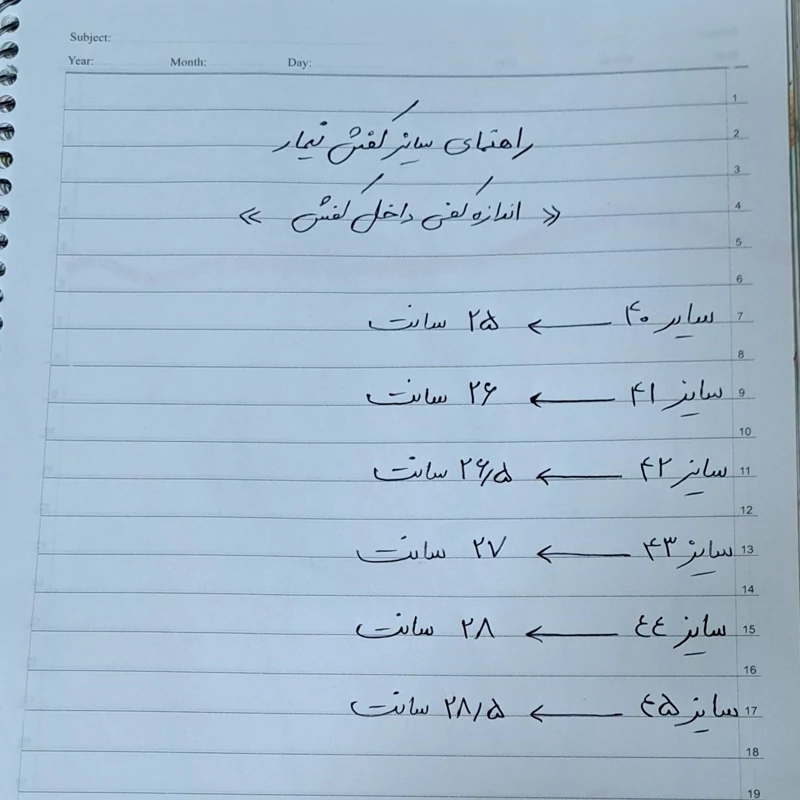 Subject:
Year: Month: Day:
راهنمای سایز کفش نیمار
« اندازه کفی داخل کفش »
سایز ۴۰ ← ۲۵ سانت
سایز ۴۱ ← ۲۶ سانت
سایز ۴۲ ← ۲۶٫۵ سانت
سایز ۴۳ ← ۲۷ سانت
سایز ٤٤ ← ۲۸ سانت
سایز ٤۵ ← ۲۸٫۵ سانت
1
2
3
4
5
6
7
8
9
10
11
12
13
14
15
16
17
18
19